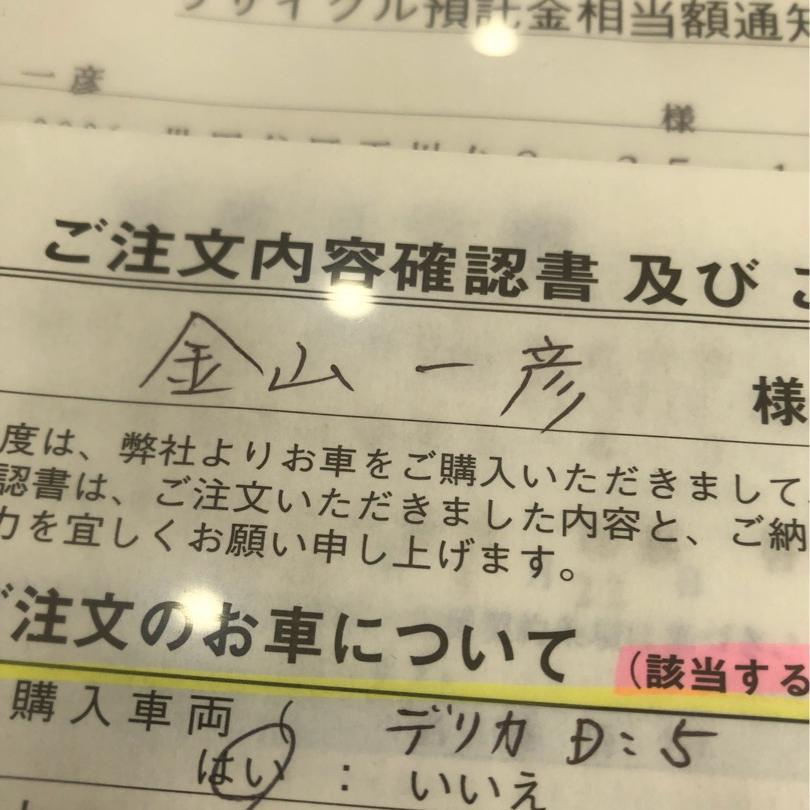 リサイクル預託金相当額通知
一彦 様
ご注文内容確認書 及び
金山 一彦 様
度は、弊社よりお車をご購入いただきまして
認書は、ご注文いただきました内容と、ご納
力を宜しくお願い申し上げます。
ご注文のお車について (該当する
購入車両 デリカ D:5
はい : いいえ